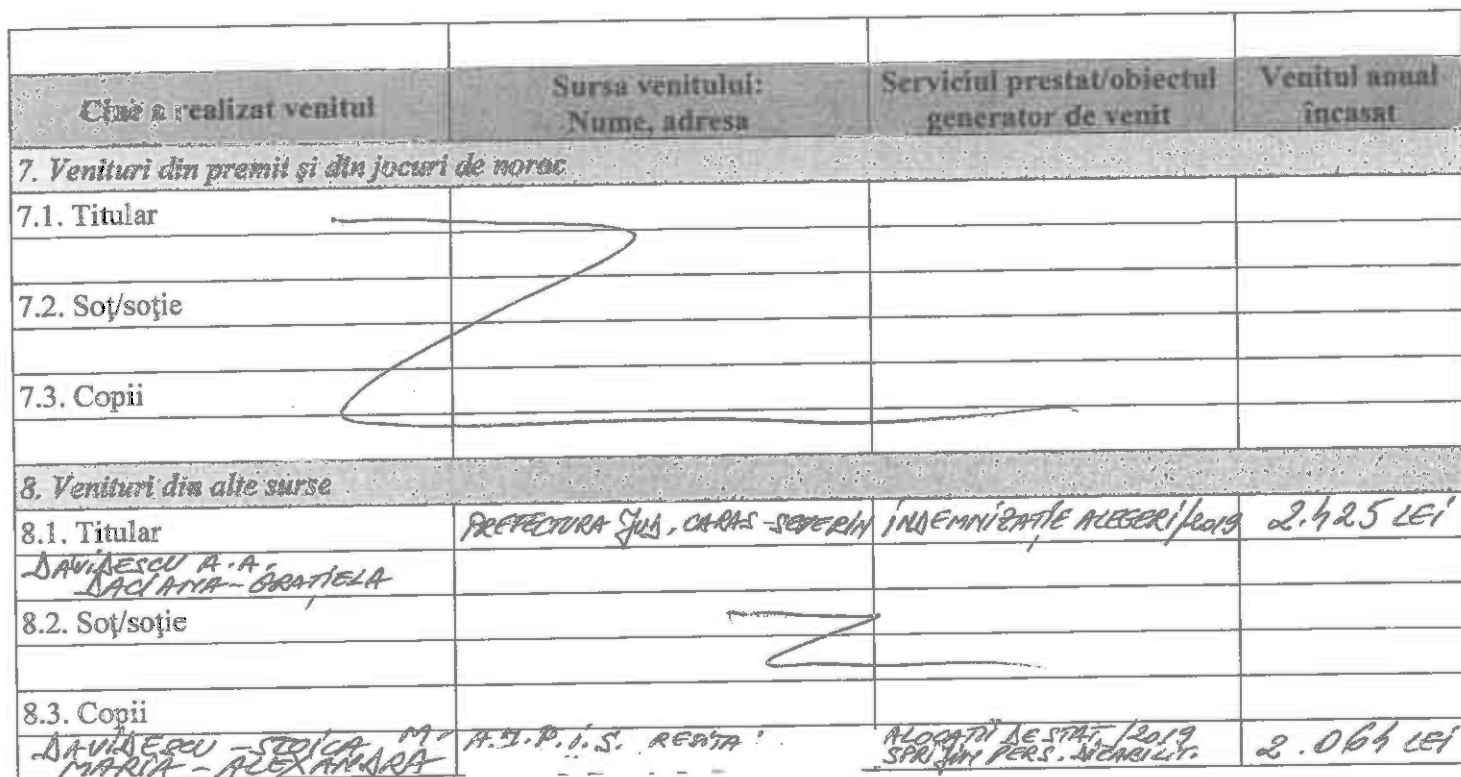 Cine a realizat venitul
Sursa venitului:
Nume, adresa
Serviciul prestat/obiectul
generator de venit
Venitul anual
încasat
7. Venituri din premii şi din jocuri de noroc
7.1. Titular
7.2. Soţ/soţie
7.3. Copii
8. Venituri din alte surse
8.1. Titular
PREFECTURA JUD. CARAS-SEVERIN
INDEMNIZAȚIE ALEGERI/2019
2.425 LEI
DAVIDESCU A.A.
DACIANA-GRAȚIELA
8.2. Soţ/soţie
8.3. Copii
DAVIDESCU-STOICA M.
MARIA-ALEXANDRA
RESITA
ALOCAȚII DE STAT/2019
SPRIJIN PERS.
2.064 LEI